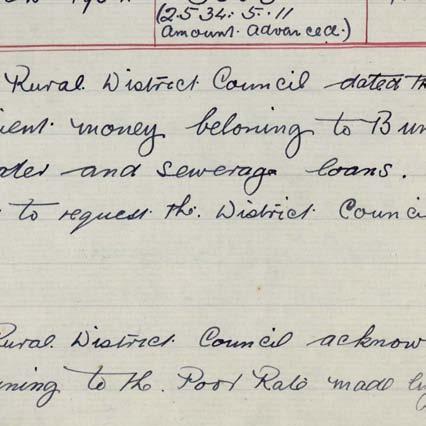 (2534. 5. 11
Amount Advanced.)
Rural District Council dated th
ient money beloning to Bun
ater and sewerage loans.
to request the District Counci
Rural District Council acknow
ning to the Poor Rate made by